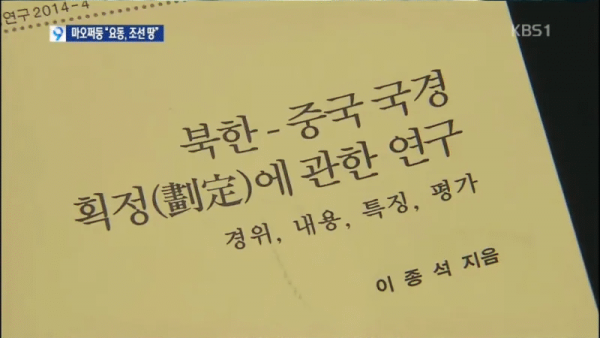 연구 2014-4
9 마오쩌둥 "요동, 조선 땅"
KBS1
북한 - 중국 국경
획정(劃定)에 관한 연구
경위, 내용, 특징, 평가
이 종 석 지음